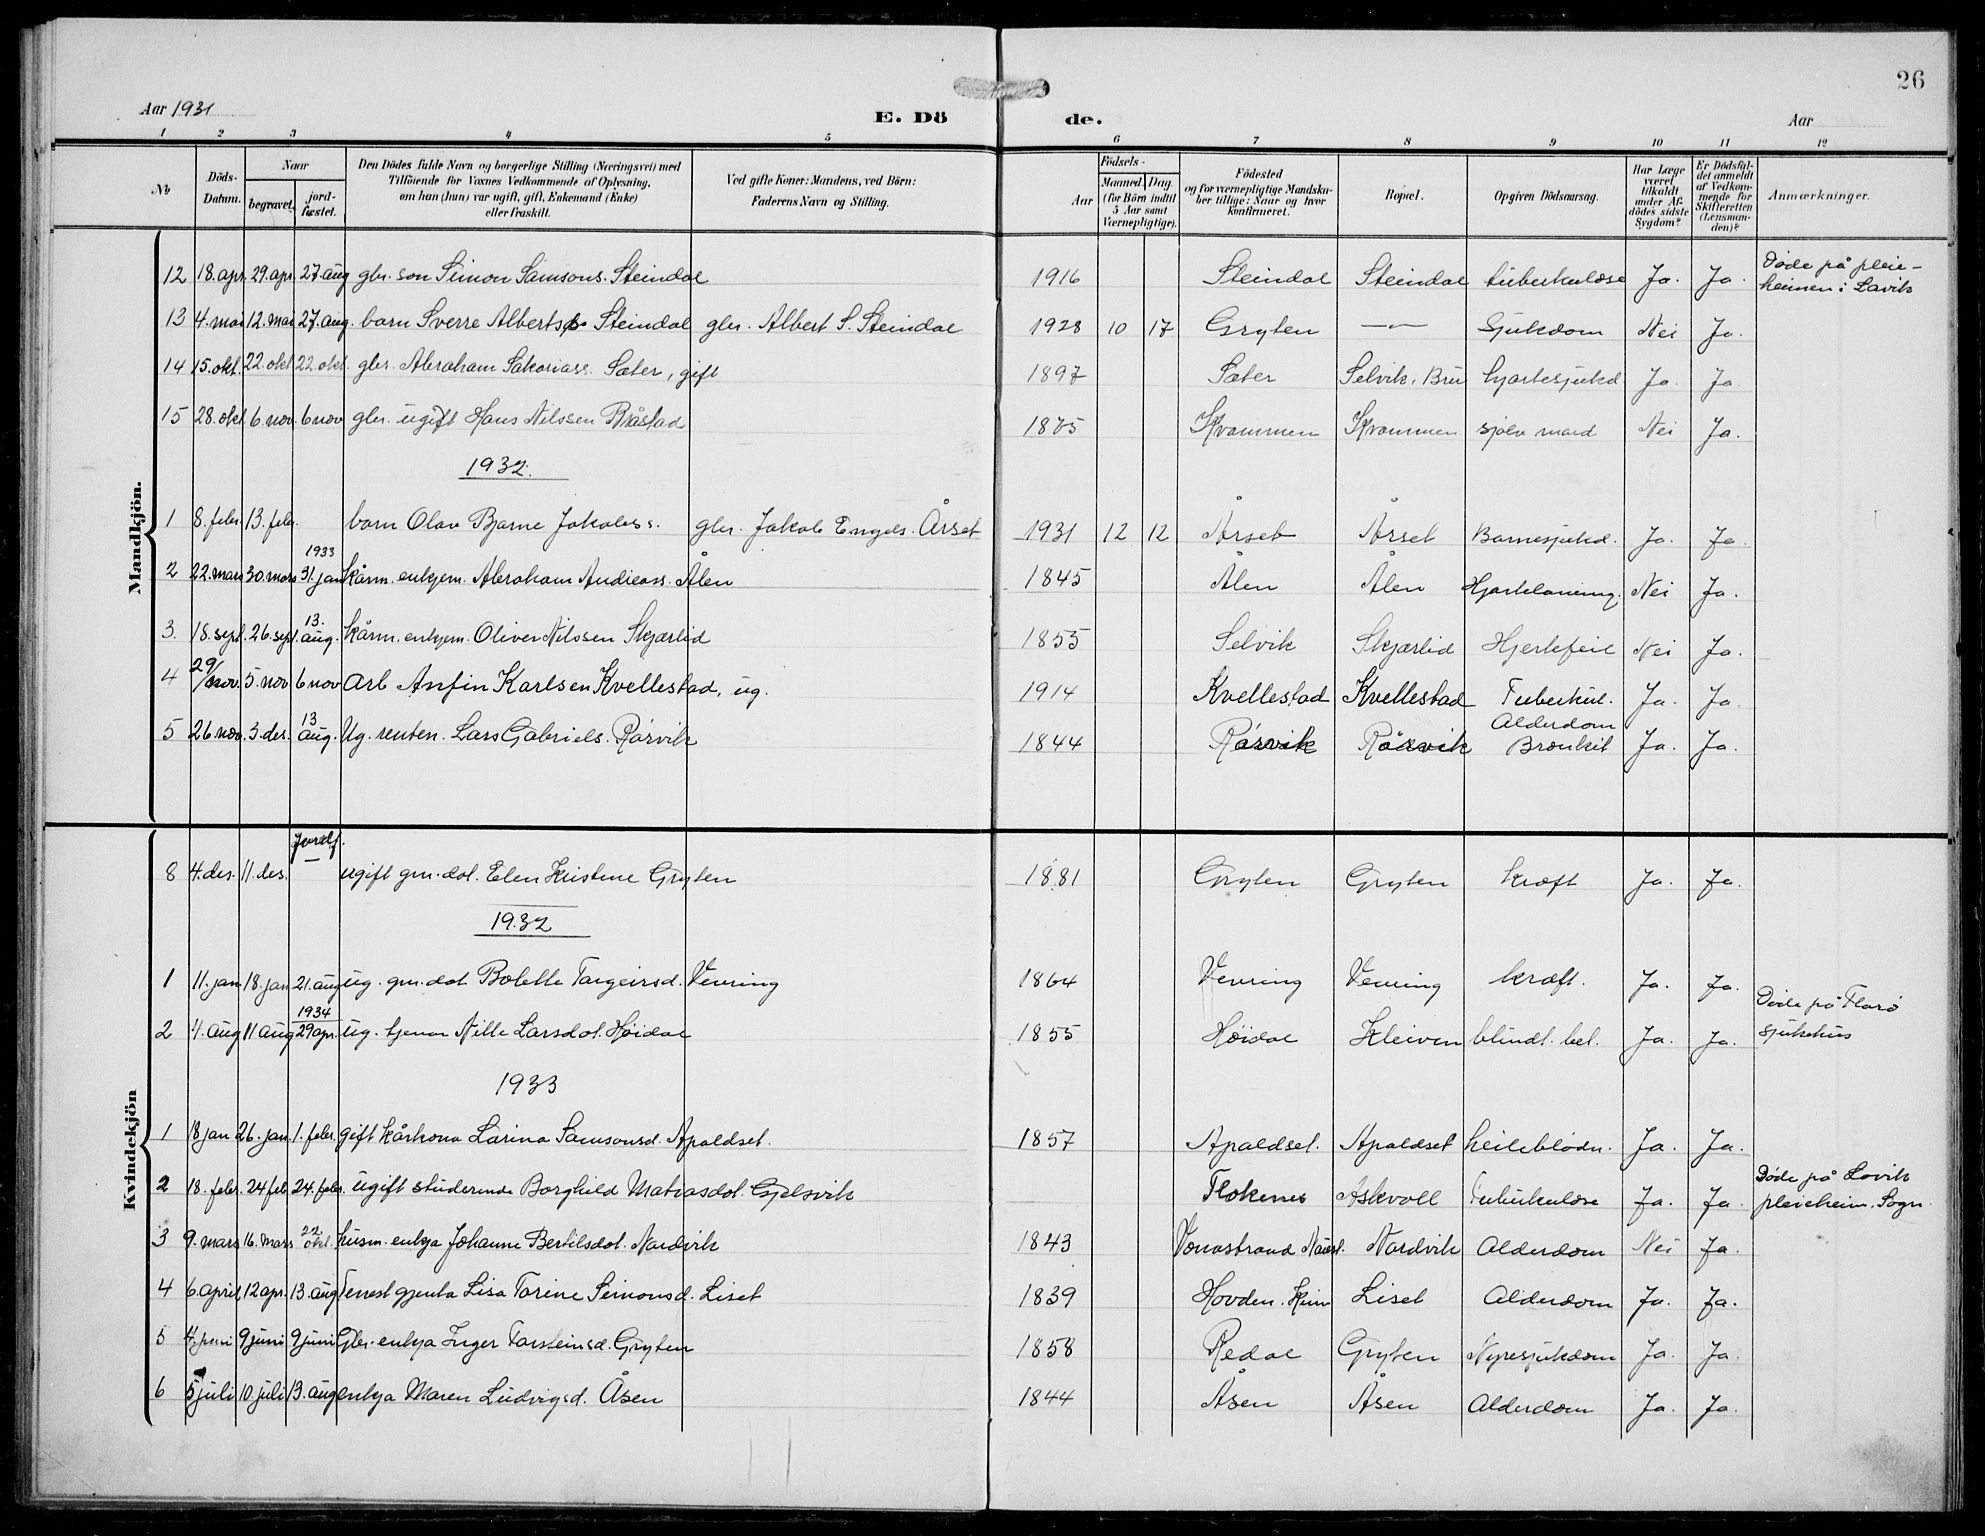 26
Aar 1931
E. Dö de.
Aar
1 2 3 4 5 6 7 8 9 10 11 12
No
Döds-Datum.
Naar
begravet.
jord-fæstet.
Den Dödes fulde Navn og borgerlige Stilling (Næringsvei) med
Tilföiende for Voxnes Vedkommende af Oplysning,
om han (hun) var ugift, gift, Enkemand (Enke)
eller fraskilt.
Ved gifte Koner: Mandens, ved Börn:
Faderens Navn og Stilling.
Födsels-
Aar
Maaned. Dag.
(for Börn indtil
5 Aar samt
Værnepligtige).
Födested
og for værnepligtige Mandska-
ber tillige: Naar og hvor
konfirmeret.
Bopæl.
Opgiven Dödsaarsag.
Har Læge
været
tilkaldt
under Af-
dödes sidste
Sygdom?
Er Dödsfal-
det anmeldt
af Vedkom-
mende for
Skifteretten
(Lensman-
den)?
Anmærkninger.
Mandkjön.
12 18. apr. 29. apr. 27. aug gbr. son Simon Samsons. Steindal 1916 Steindal Steindal tuberkulose Ja. Ja. Døde på pleie-
heimen i Lavik
13 4. mai 12. mai 27. aug. barn Sverre Alberts. Steindal gbr. Albert S. Steindal 1928 10 17 Gryten —"— Sjukdom Nei Ja.
14 15. okt. 22 okt 22. okt. gbr. Abraham Sakariass. Sæter, gift 1897 Sæter Selvik, Bru hjartesjukd Ja. Ja
15 28. okt. 6. nov. 6 nov gbr. ugift Hans Nilssen Råstad 1875 Kvammen Kvammen sjølv mord Nei Ja.
1932.
1 8. febr. 13. febr. barn Olav Bjarne Jakobss. gbr. Jakob Engels. Årset 1931 12 12 Årset Årset Barnesjukd. Ja. Ja.
1933
2 22. mars 30. mars 31. jan kårm. enkjem. Abraham Andreass. Ålen 1845 Ålen Ålen Hjartelaming. Nei Ja.
3. 18. sept. 26. sept. 13. aug. kårm. enkjem. Oliver Nilssen Skjærlid 1855 Selvik Skjærlid Hjertefeil Nei Ja.
4 29/nov. 5. nov 6 nov Arb Anfin Karlsen Kvellestad, ug. 1914 Kvellestad Kvellestad Tuberkul. Ja. Ja.
5 26 nov. 3. des. 13 aug. Ug. renten. Lars Gabriels. Rørvik 1844 Rørvik Rørvik Alderdom
Bronkit Ja. Ja.
Kvindekjön
Jordf.
8 4. des. 11. des. — ugift gm. dot. Elen Kristine Gryten 1881 Gryten Gryten kræft Ja. Ja.
1932
1 11. jan 18. jan 21. aug ug. gm. dot Bolette Torgeirsd. Vevring 1864 Vevring Vevring kræft. Ja. Ja.
1934
2 4. aug 11 aug 29 apr. ug. tjenar Nille Larsdot. Høidal 1855 Høidal Kleiven blindt. bet. Ja. Ja. Døde på Florø
sjukehus
1933
1 18 jan 26. jan. 1. febr. gift kårkona Larina Samsonsd. Apaldset. 1857 Apaldset. Apaldset heileblødn. Ja. Ja.
2 18. febr. 24 feb 24. febr. ugift studerende Borghild Matiasdot. Gjelsvik Flokenes Askvoll Tuberkulose Ja. Ja. Døde på Lavik
pleieheim, Sogn.
3 9. mars 16. mars 22 okt. husm. enkja Johanne Bertilsdot. Nordvik 1843 Vonastrand Naust. Nordvik Alderdom Nei Ja.
4 6. april 12 apr. 13. aug Tenest gjenta Lisa Torine Simonsd. Liset 1839 Hovden. Kinn Liset Alderdom Ja. Ja.
5 4 juni 9 juni 9 juni Gbr. enkja Inger Torsteinsd. Gryten 1858 Redal Gryten Nyresjukdom Ja. Ja.
6 5 juli 10 juli 13. aug enkja Maren Ludvigsd. Åsen 1844 Åsen Åsen Alderdom Ja. Ja.